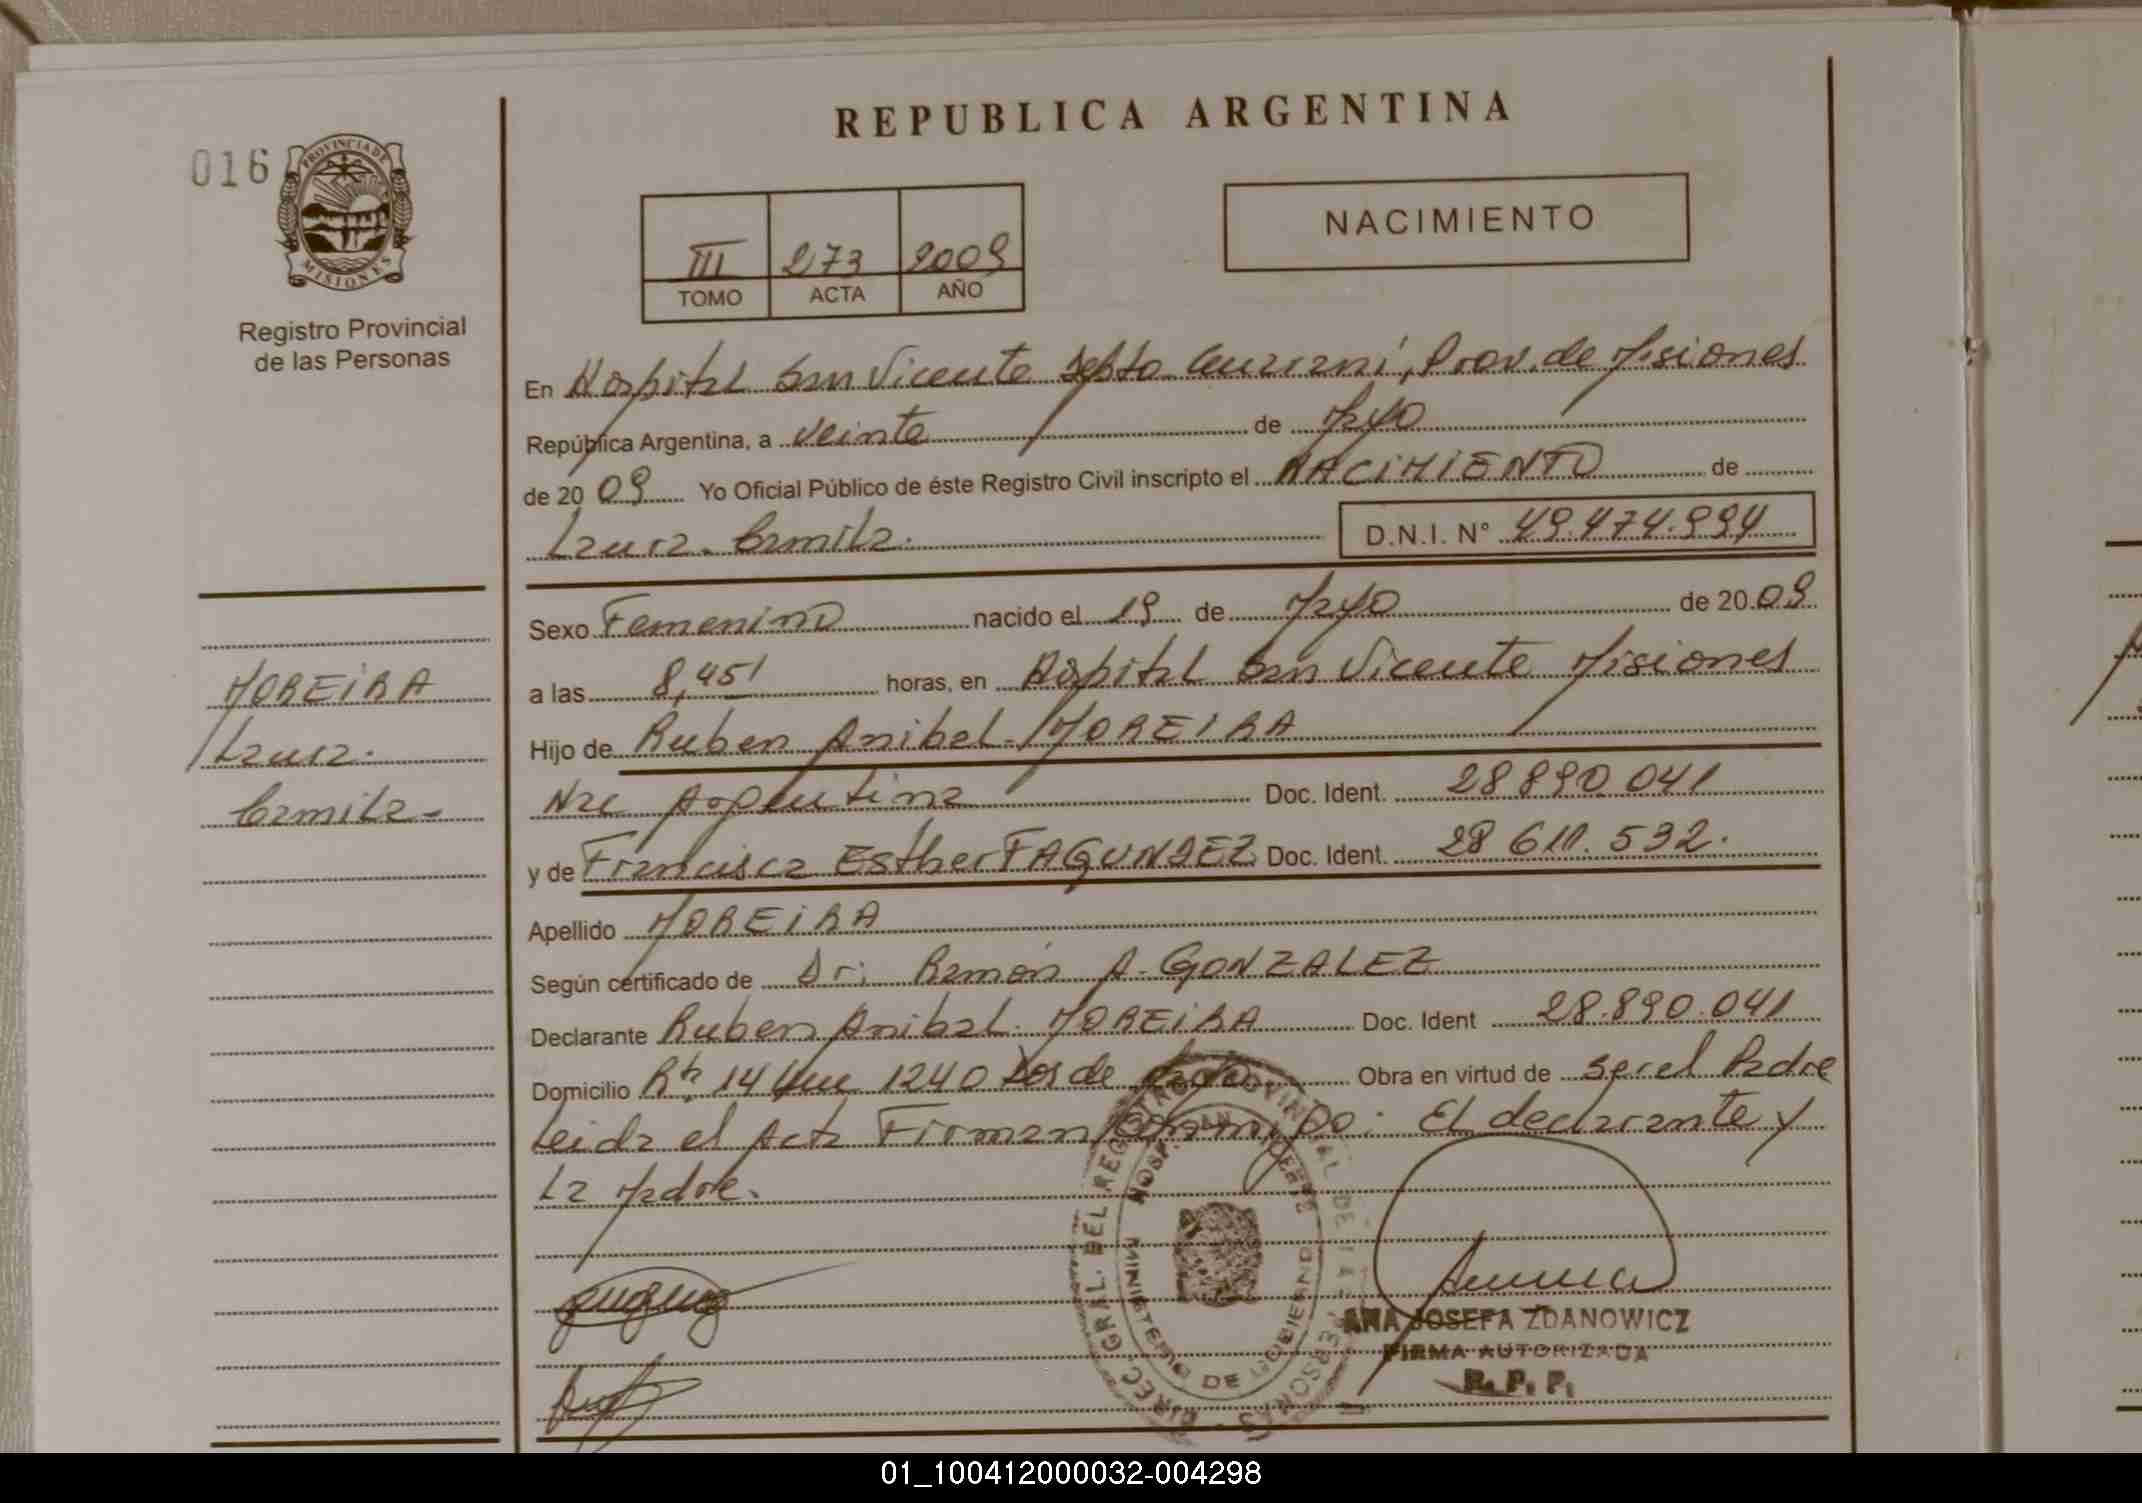 REPUBLICA ARGENTINA
016
PROVINCIA DE
MISIONES
Registro Provincial
de las Personas
III 273 2009
TOMO ACTA AÑO
NACIMIENTO
En Hospital San Vicente Depto Guarani, Prov. de Misiones
República Argentina, a veinte de Mayo
de 20 09 Yo Oficial Público de éste Registro Civil inscripto el NACIMIENTO de
Laura Camila. D.N.I. N° 49.474.994
Sexo Femenino nacido el 19 de Mayo de 20 09
a las 8,45' horas, en Hospital San Vicente Misiones
Hijo de Ruben Anibal MOREIRA
Nac Argentina Doc. Ident. 28 890 041
y de Francisca Esther FAGUNDEZ Doc. Ident. 28 611. 532.
Apellido MOREIRA
Según certificado de Dr. Ramón A. GONZALEZ
Declarante Ruben Anibal MOREIRA Doc. Ident 28.890.041
Domicilio 14 1240 de Obra en virtud de ser el Padre
Leida el Acta Firman Conmigo: El declarante y
La Madre.
MOREIRA
Laura
Camila-
DIREC. GRAL. DEL REGISTRO PROVINCIAL DE LAS PERSONAS
HOSP. SAN VICENTE
MINISTERIO DE GOBIERNO
ANA JOSEFA ZDANOWICZ
FIRMA AUTORIZADA
R. P. P.
01_100412000032-004298